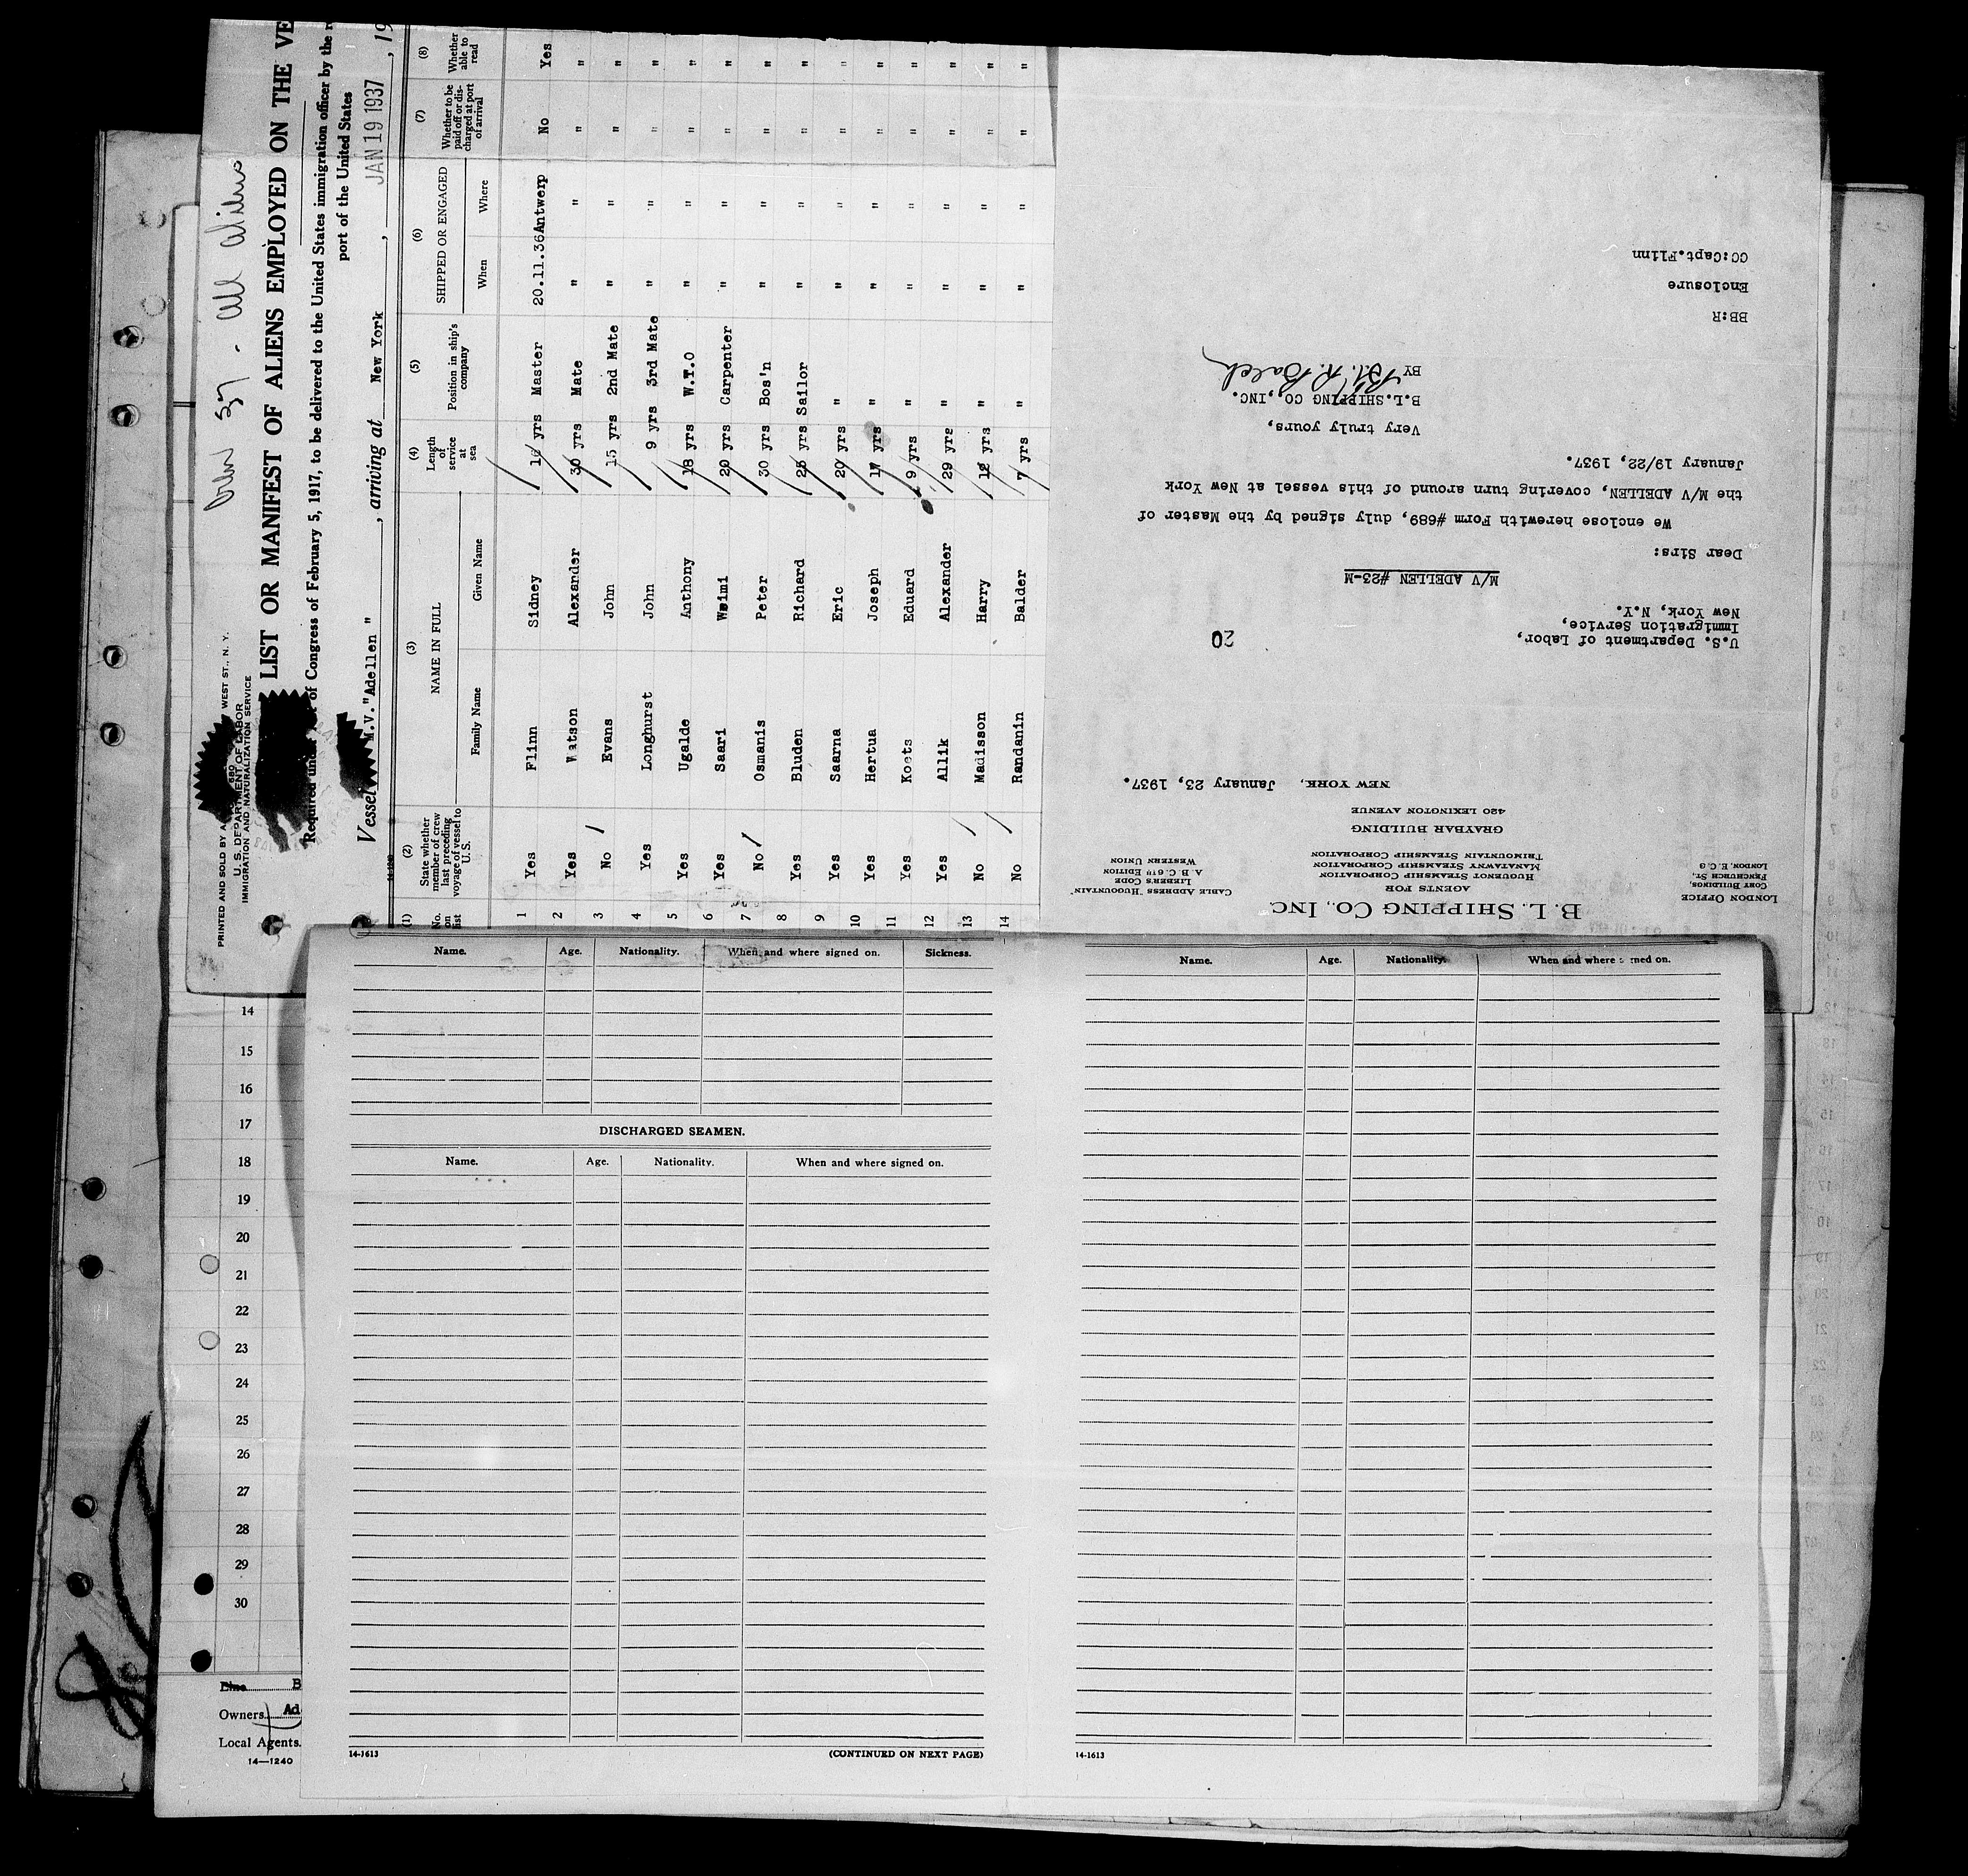 Crew 37 - all aliens
PRINTED AND SOLD BY
WEST ST., N. Y.
U. S. DEPARTMENT OF LABOR
IMMIGRATION AND NATURALIZATION SERVICE
LIST OR MANIFEST OF ALIENS EMPLOYED ON THE VE
Required under of Congress of February 5, 1917, to be delivered to the United States immigration officer by the
port of the United States
Vessel M.V."Adellen" , arriving at New York , JAN 19 1937 , 19
(1) (2) (3) (4) (5) (6) (7) (8)
No. on list
State whether member of crew last preceding voyage of vessel to U.S.
NAME IN FULL
Family Name Given Name
Length of service at sea
Position in ship's company
SHIPPED OR ENGAGED
When Where
Whether to be paid off or discharged at port of arrival
Whether able to read
1 Yes Flinn Sidney yrs Master 20.11.36 Antwerp No Yes
2 Yes Watson Alexander 30 yrs Mate " " " "
3 No Evans John 15 yrs 2nd Mate " " " "
4 Yes Longhurst John 9 yrs 3rd Mate " " " "
5 Yes Ugalde Anthony 18 yrs W.T.O " " " "
6 Yes Saari Weimi 20 yrs Carpenter " " " "
7 No Osmanis Peter 30 yrs Bos'n " " " "
8 Yes Bluden Richard 25 yrs Sailor " " " "
9 Yes Saarna Eric 20 yrs " " " " "
10 Yes Hertua Joseph 17 yrs " " " " "
11 Yes Koots Eduard 9 yrs " " " " "
12 Yes Allik Alexander 29 yrs " " " " "
13 No Madisson Harry 12 yrs " " " " "
14 No Randanin Balder 7 yrs " " " " "
B. L. SHIPPING CO., INC.
AGENTS FOR
HUGUENOT STEAMSHIP CORPORATION
MANATAWNY STEAMSHIP CORPORATION
TRIMOUNTAIN STEAMSHIP CORPORATION
GRAYBAR BUILDING
420 LEXINGTON AVENUE
LONDON OFFICE
CORY BUILDINGS,
FENCHURCH ST.,
LONDON, E.C. 3
CABLE ADDRESS "HUGOUNTAIN"
LIEBER'S CODE
A.B.C. 6TH EDITION
WESTERN UNION
NEW YORK, January 23, 1937.
U.S. Department of Labor,
Immigration Service,
New York, N.Y.
20
M/V ADELLEN #23-M
Dear Sirs:
We enclose herewith Form #689, duly signed by the Master of
the M/V ADELLEN, covering turn around of this vessel at New York
January 19/22, 1937.
Very truly yours,
B.L.SHIPPING CO.,INC.
BY
BB:R
Enclosure
CC:Capt.Flinn
Name. Age. Nationality. When and where signed on. Sickness.
DISCHARGED SEAMEN.
Name. Age. Nationality. When and where signed on.
14-1613 (CONTINUED ON NEXT PAGE)
Name. Age. Nationality. When and where signed on.
14-1613
14
15
16
17
18
19
20
21
22
23
24
25
26
27
28
29
30
Line B
Owners Ad
Local Agents
14—1240